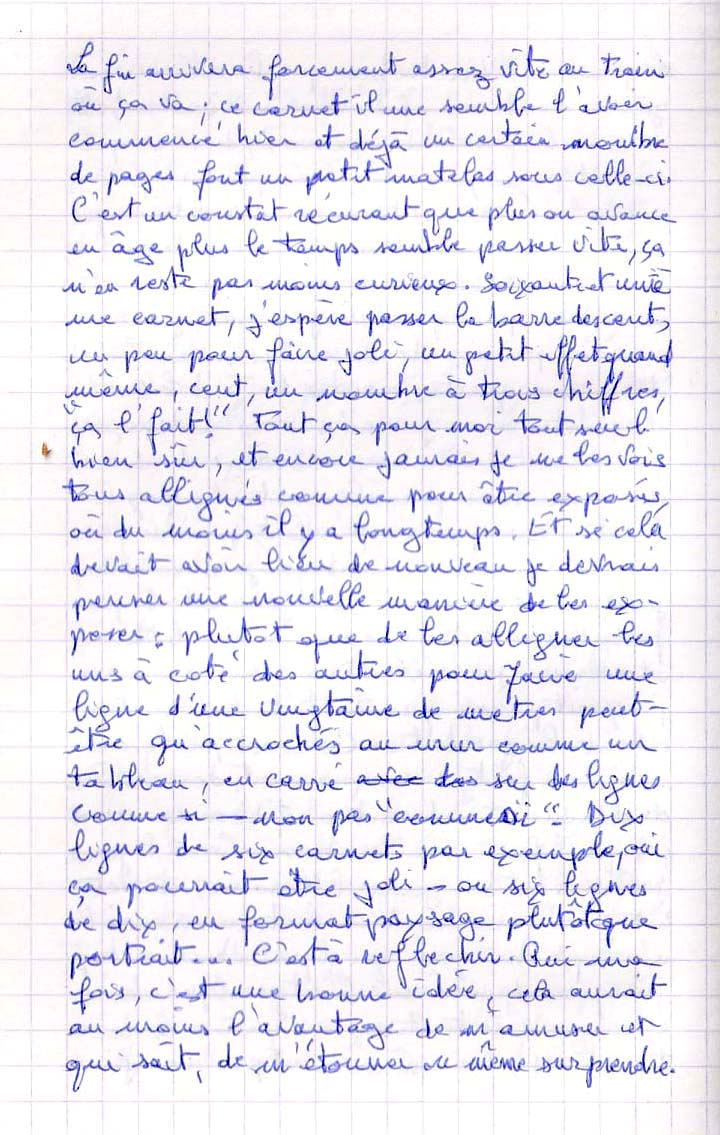 La fin arrivera forcement assez vite au train
où ça va; ce carnet il me semble l'avoir
commencé hier et déjà un certain nombre
de pages font un petit matelas sous celle-ci.
C'est un constat récurant que plus on avance
en âge plus le temps semble passer vite, ça
n'en reste pas moins curieux. Soixante et unième
carnet, j'espère passer la barre des cent,
un peu pour faire joli, un petit effet quand
même, cent, un nombre à trois chiffres,
"ça l'fait!" Tout ça pour moi tout seul
bien sûr, et encore jamais je ne les vois
tous allignés comme pour être exposés,
où du moins il y a longtemps. Et si cela
devait avoir lieu de nouveau je devrais
penser une nouvelle manière de les ex-
poser: plutot que de les alligner les
uns à coté des autres pour faire une
ligne d'une vingtaine de mètres peut-
être qu'accrochés au mur comme un
tableau, en carré avec des sur des lignes
comme si — non pas "comme si" - Dix
lignes de six carnets par exemple, oui
ça pourrait être joli - ou six lignes
de dix, en format paysage plutôt que
portrait... C'est à reflechir. Oui ma
fois, c'est une bonne idée, cela aurait
au moins l'avantage de m'amuser et
qui sait, de m'étonner ou même surprendre.